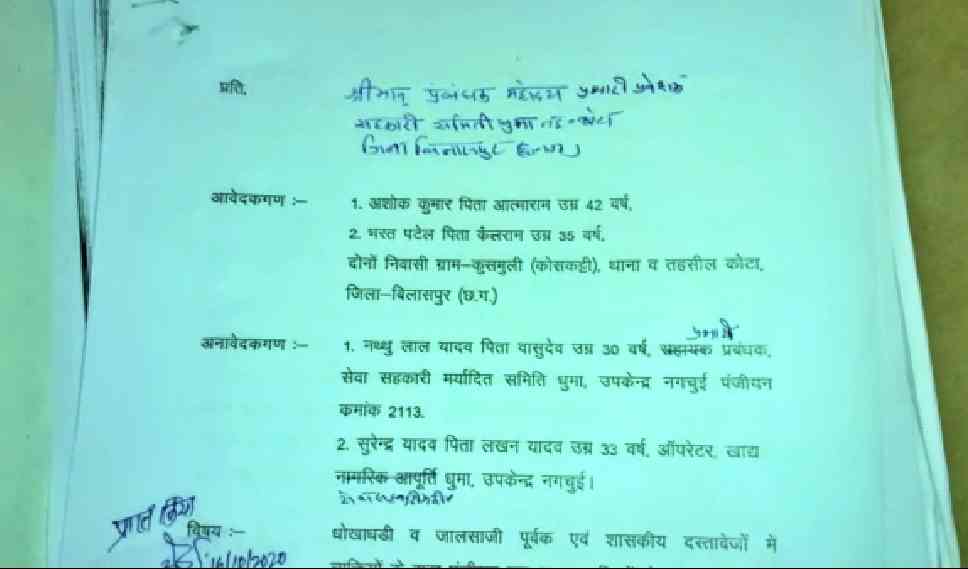 प्रति,
श्रीमान् प्रबंधक महोदय प्रभारी
सहकारी समिति धुमा तह-कोटा
जिला बिलासपुर
आवेदकगण :– 1. अशोक कुमार पिता आत्माराम उम्र 42 वर्ष,
2. भरत पटेल पिता कैलराम उम्र 35 वर्ष,
दोनों निवासी ग्राम–कुसमुली (कोसकट्टी), थाना व तहसील कोटा,
जिला–बिलासपुर (छ.ग.)
प्रभारी
अनावेदकगण :– 1. नथ्थु लाल यादव पिता वासुदेव उम्र 30 वर्ष, सहायक प्रबंधक,
सेवा सहकारी मर्यादित समिति धुमा, उपकेन्द्र नगचुई पंजीयन
कमांक 2113.
2. सुरेन्द्र यादव पिता लखन यादव उम्र 33 वर्ष, ऑपरेटर, खाद्य
नागरिक आपूर्ति धुमा, उपकेन्द्र नगचुई।
प्राप्त किया
विषय :– धोखाधडी व जालसाजी पूर्वक एवं शासकीय दस्तावेजों में
16/10/2020